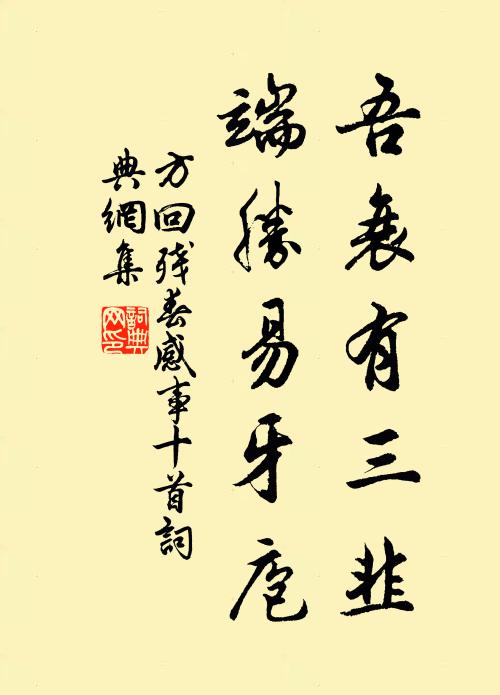 吾衰有三韭
端勝易牙庖
方回殘春感事十首詞
典網集
詞典
网印